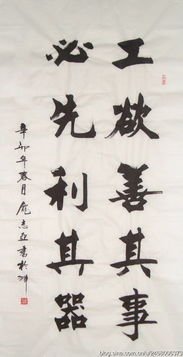 工欲善其事
必先利其器
辛卯年春月庞志亚书於
blog.sina.com.cn/u/2468006373